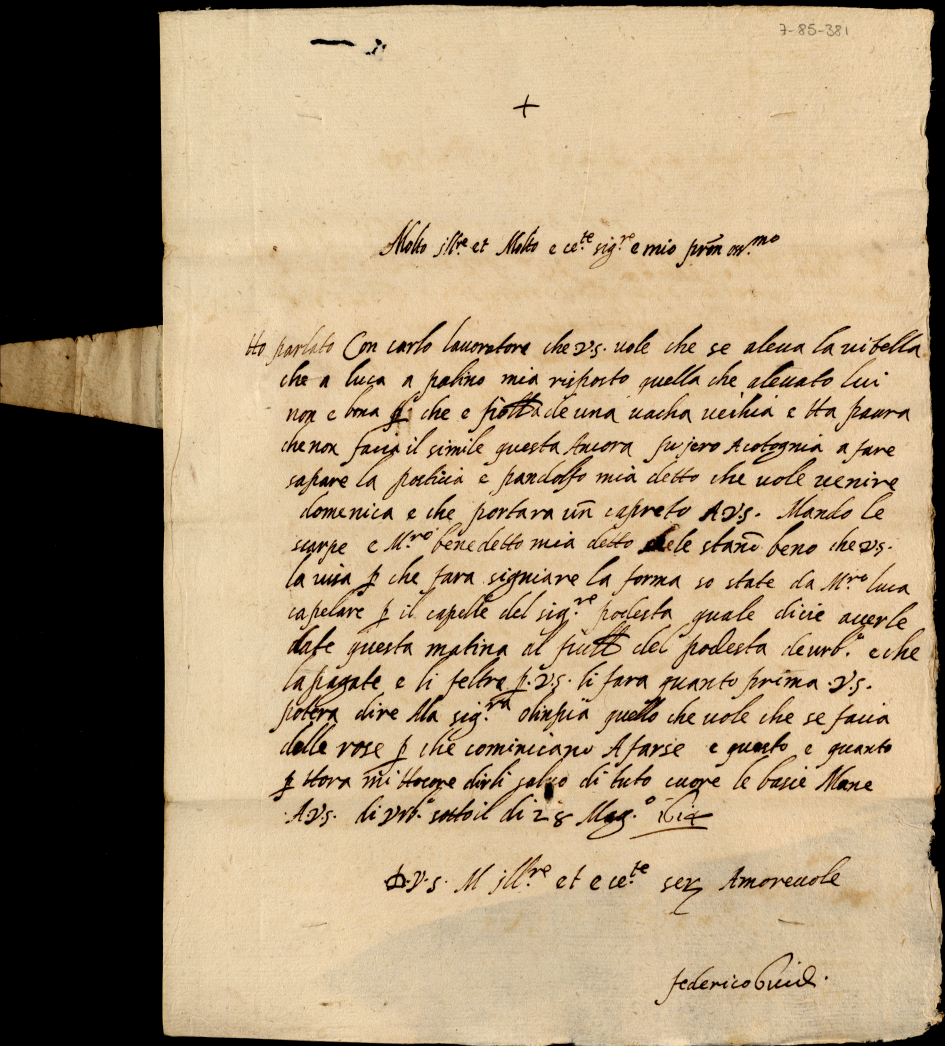 7-85-381
+
Molto Ill.re et Molto ecc.te sig.re e mio pron oss.mo
Ho parlato Con carlo lauoratore che v.s. uole che se aleua la uitella
che a luca a palino mia risposto quella che aleuato lui
non e bona p che e fiotta de una uacha uechia e Ha paura
che non facia il simile questa Ancora fu jero Acotognia a fare
sapare la posticia e pandolfo mia detto che uole uenire
domenica e che portara un capreto A v.s. Mando le
scarpe e M.ro benedetto mia detto che le stano beno che v.s.
la uisa p che fara signiare la forma so state da M.ro luca
capelare p il capelle del sig.re podesta quale dicie auerle
date questa matina al del podesta de urb.o e che
la pagate e li feltre p. v.s. li fara quanto prima .v.s.
potera dire Ala sig.ra olinpia quello che uole che se facia
delle rose p che cominciano A farse e questo e quanto
p Hora mi Hocore dirli saluo di tuto cuore le basie Mane
.A v.s. di vrb.o sotto il di 28 Mag.o
D. v. s. M Ill.re et ecc.te ser Amoreuole
federico Guidi